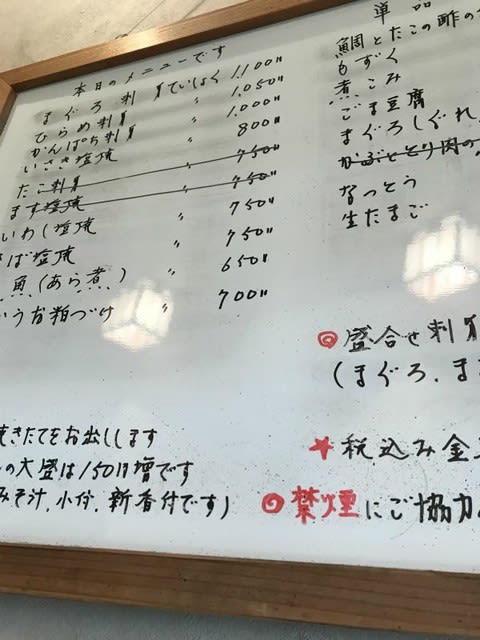 本日のメニューです
まぐろ刺身ていしょく 1,100円
ひらめ刺身 〃 1,050円
かんぱち刺身 〃 1,000円
いさき塩焼 〃 800円
たこ刺身 〃 750円
ます塩焼 〃 750円
いわし塩焼 〃 750円
さば塩焼 〃 750円
魚(あら煮) 〃 650円
うお粕づけ 〃 700円
焼きたてをお出しします
の大盛は150円増です
みそ汁、小付、新香付です)
単品
鯛とたこの酢の
もずく
煮こみ
ごま豆腐
まぐろしぐれ
かぶととり肉の
なっとう
生たまご
◎盛合せ刺身
(まぐろ、ま
★税込み金
◎禁煙にご協力